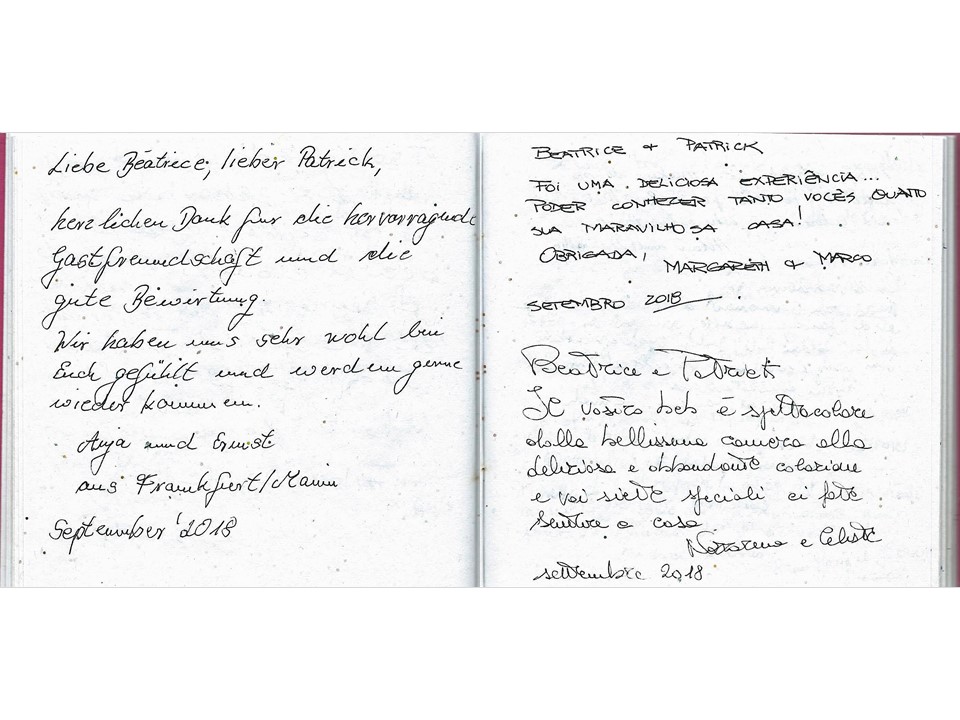 Liebe Béatrice, lieber Patrick,
herzlichen Dank für die hervorragende
Gastfreundschaft und die
gute Bewirtung.
Wir haben uns sehr wohl bei
Euch gefühlt und werden gerne
wieder kommen.
Anja und Ernst
aus Frankfurt/Main
September '2018
BEATRICE & PATRICK
FOI UMA DELICIOSA EXPERIÊNCIA...
PODER CONHECER TANTO VOCÊS QUANTO
SUA MARAVILHOSA CASA!
OBRIGADA, MARGARETH & MARCO
SETEMBRO 2018
Beatrice e Patrick
Il vostro beb è spettacolare
dalla bellissima camera alla
deliziosa e abbondante colazione
e voi siete speciali ci fate
sentire a casa
Nazareno e Celeste
settembre 2018